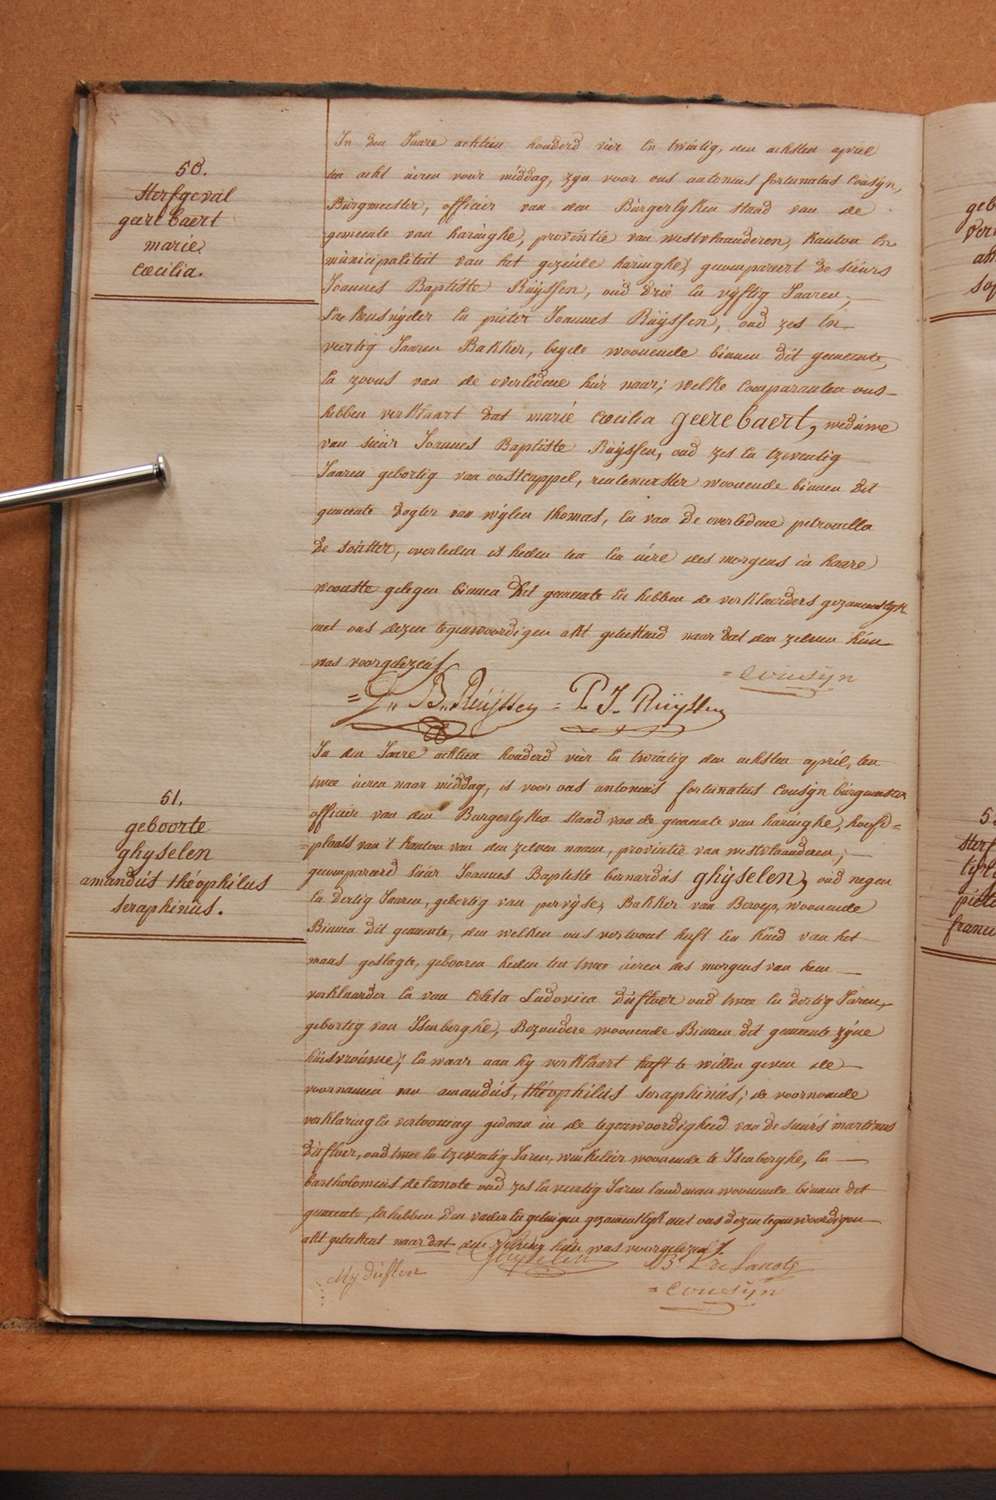 50.
Sterfgeval
geerebaert
marie
cæcilia.
In den Jaare achtien honderd vier en twintig, den achsten april
ten acht ueren voor middag, zyn voor ons antonius fortunatus Cousyn,
Bürgmeester, officier van den Bürgerlyken stand van de
gemeente van haringhe, provintie van westvlaanderen, kanton en
münicipaliteit van het gezeide haringhe, gecompareert de sieurs
Joannes Baptiste Rüyssen, oud drie en vyftig Jaaren,
en pieter Joannes Rüyssen, oud zes en
veertig Jaaren Bakker, beyde woonende binnen dit gemeente,
en zoons van de overledene hier naar; welke Comparanten ons
hebben verklaart dat marie cæcilia geerebaert, wedúwe
van sieur Joannes Baptiste Rüyssen, oud zes en tzeventig
Jaaren gebortig van oustcappel, rentenierster woonende binnen dit
gemeente dogter van wylen thomas, en van de overledene petronella
de soutter, overleden is heden ten een úere des morgens in haare
woonste gelegen binnen dit gemeente en hebben de verklaerders gezamentlyk
met ons dezen tegenwoordigen akt geteekend naar dat den zelven hún
was voorgelezen
= Cousyn
= J,, B,, Rúÿssen = P J. Rúÿssen
51.
geboorte
ghyselen
amandús théophilus
seraphinús.
In den Jaare achtien honderd vier en twintig den achsten april, ten
twee úeren naar middag, is voor ons antonius fortunatus Cousyn bürgmeester
officier van den Bürgerlyken stand van de gemeente van haringhe, hoofd=
=plaats van 't kanton van den zelven naam, provintie van westvlaanderen,
gecompareerd sieúr Joannes Baptiste bernardús ghyselen, oud negen
en dertig Jaaren, gebortig van pervÿse, Bakker van Beroep, woonende
Binnen dit gemeente, den welken ons vertoont heeft een kind van het
mans geslagte, gebooren heden ten twee úeren des morgens van hem
verklaarder en van Coleta Ludovica dúfloer oud twee en dertig Jaren,
gebortig van Isenberghe, Bezondere woonende Binnen dit gemeente zÿne
húisvroúwe; en waar aan hy verklaart heeft te willen geven de
voornamen van amandús, théophilús seraphinús; de voornoemde
verklaring en vertooning gedaan in de tegenwoordigheid van de sieúrs martinus
dúfloer, oud twee en tzeventig Jaren, winkelier woonende te Isenberghe, en
bartholomeus de lanote oud zes en veertig Jaren landman woonende binnen dit
gemeente, en hebben den vader en getuigen gezamentlyk met ons dezen tegenwoordigen
akt geteekent naar dat den zelven hún was voorgelezen.
Ghyselen
Cousÿn